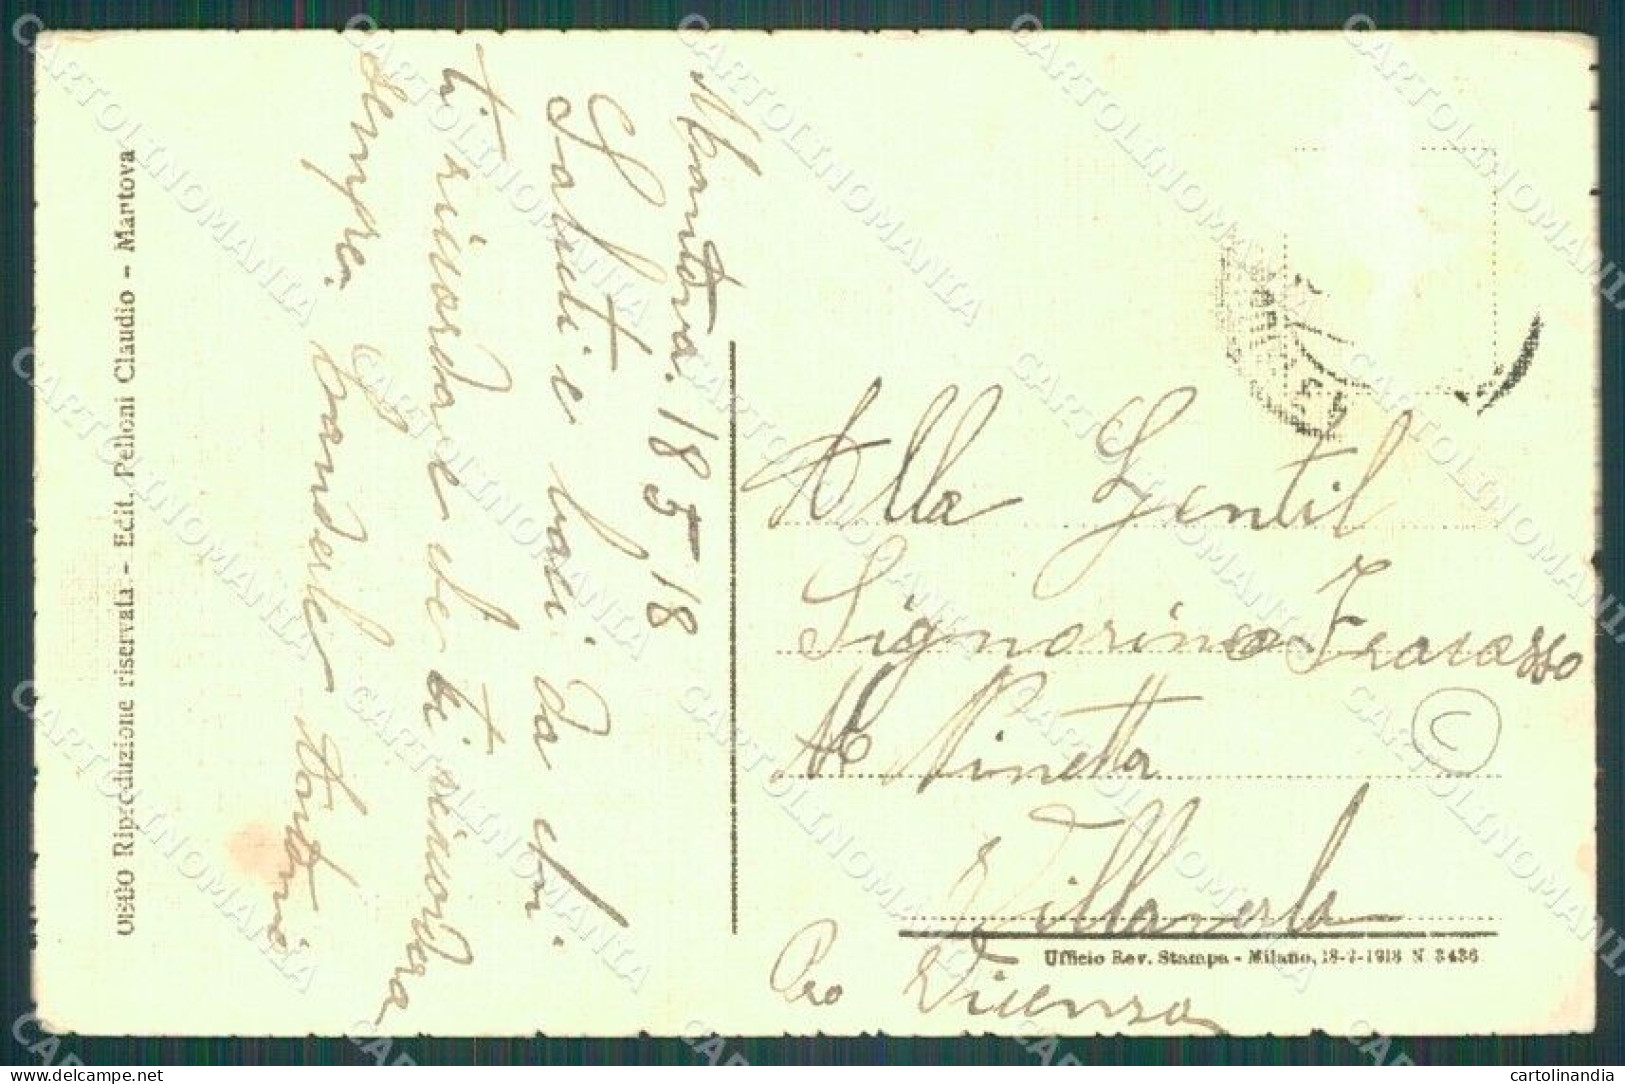 Mantova. 18 5 18
Saluti e baci da chi
ti ricorda e che ti ricordera
sempre.
Alla Gentil
Signorina Fracasso
Ninetta
Villaverla
Pro Vicenza
C
Ufficio Rev. Stampa - Milano, 18-2-1918 N. 3436
Riproduzione riservata. - Edit. Pelloni Claudio - Mantova
CARTOLINOMANIA
cartolinomania.com
cartolinandia